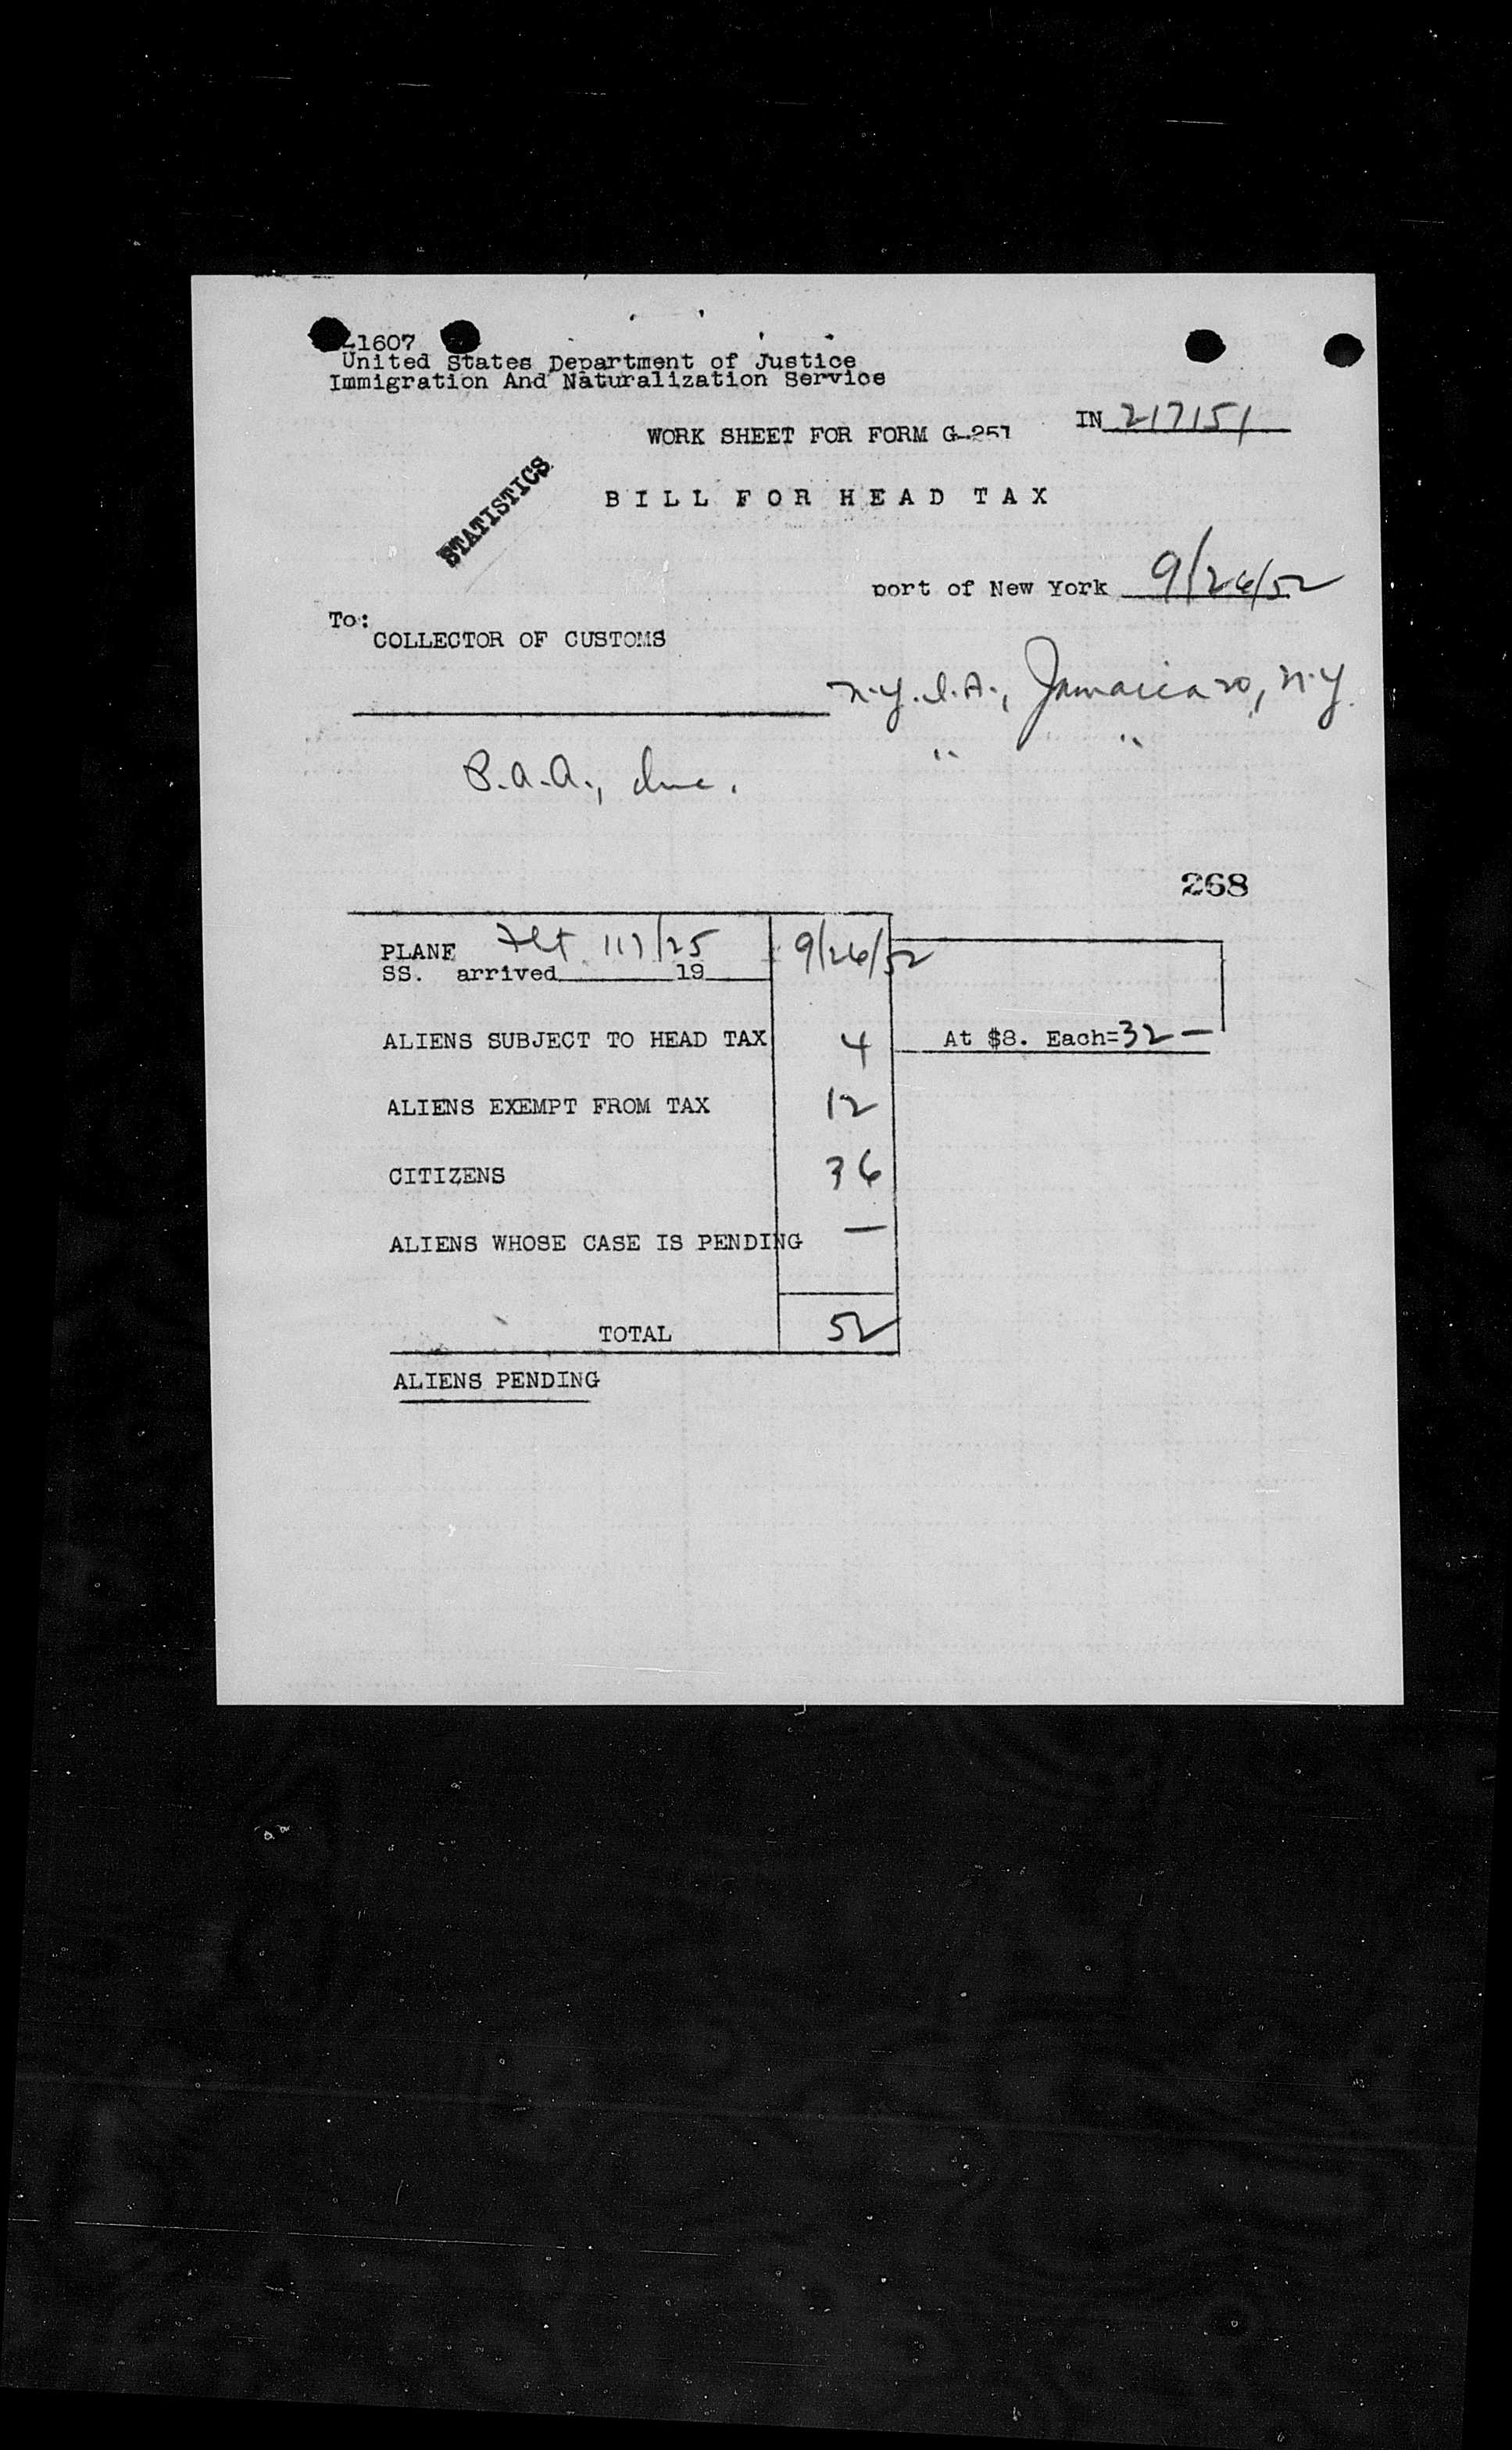 1607
United States Department of Justice
Immigration And Naturalization Service
IN 217151
WORK SHEET FOR FORM G-251
STATISTICS
BILL FOR HEAD TAX
port of New York 9/26/52
To:
COLLECTOR OF CUSTOMS
N.Y.I.A., Jamaica 20, N.Y.
" "
P.A.A., Inc.
268
PLANE Flt 117/25 9/26/52
SS. arrived 19
ALIENS SUBJECT TO HEAD TAX 4 At $8. Each=32 —
ALIENS EXEMPT FROM TAX 12
CITIZENS 36
ALIENS WHOSE CASE IS PENDING —
TOTAL 52
ALIENS PENDING